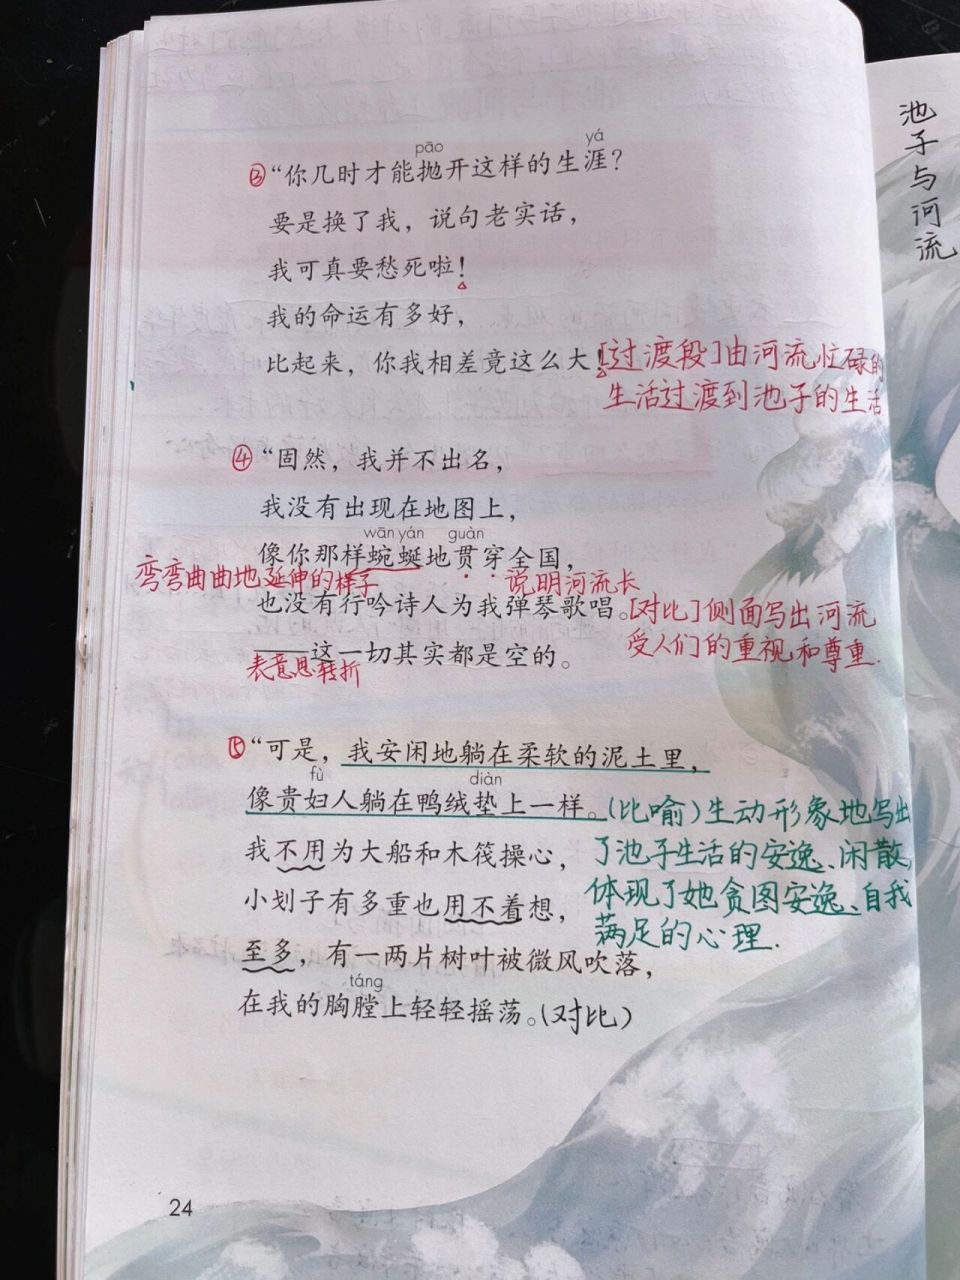 pāo yá
③“你几时才能抛开这样的生涯？
要是换了我，说句老实话，
我可真要愁死啦！
我的命运有多好，
比起来，你我相差竟这么大！
[过渡段]由河流忙碌的
生活过渡到池子的生活
④“固然，我并不出名，
我没有出现在地图上，
wān yán guàn
像你那样蜿蜒地贯穿全国，
弯弯曲曲地延伸的样子
说明河流长
也没有行吟诗人为我弹琴歌唱。
[对比]侧面写出河流
受人们的重视和尊重.
——这一切其实都是空的。
表意思转折
⑤“可是，我安闲地躺在柔软的泥土里，
fù diàn
像贵妇人躺在鸭绒垫上一样。
(比喻)生动形象地写出
了池子生活的安逸、闲散,
体现了她贪图安逸、自我
满足的心理.
我不用为大船和木筏操心，
小划子有多重也用不着想，
至多，有一两片树叶被微风吹落，
táng
在我的胸膛上轻轻摇荡。(对比)
24
池子与河流